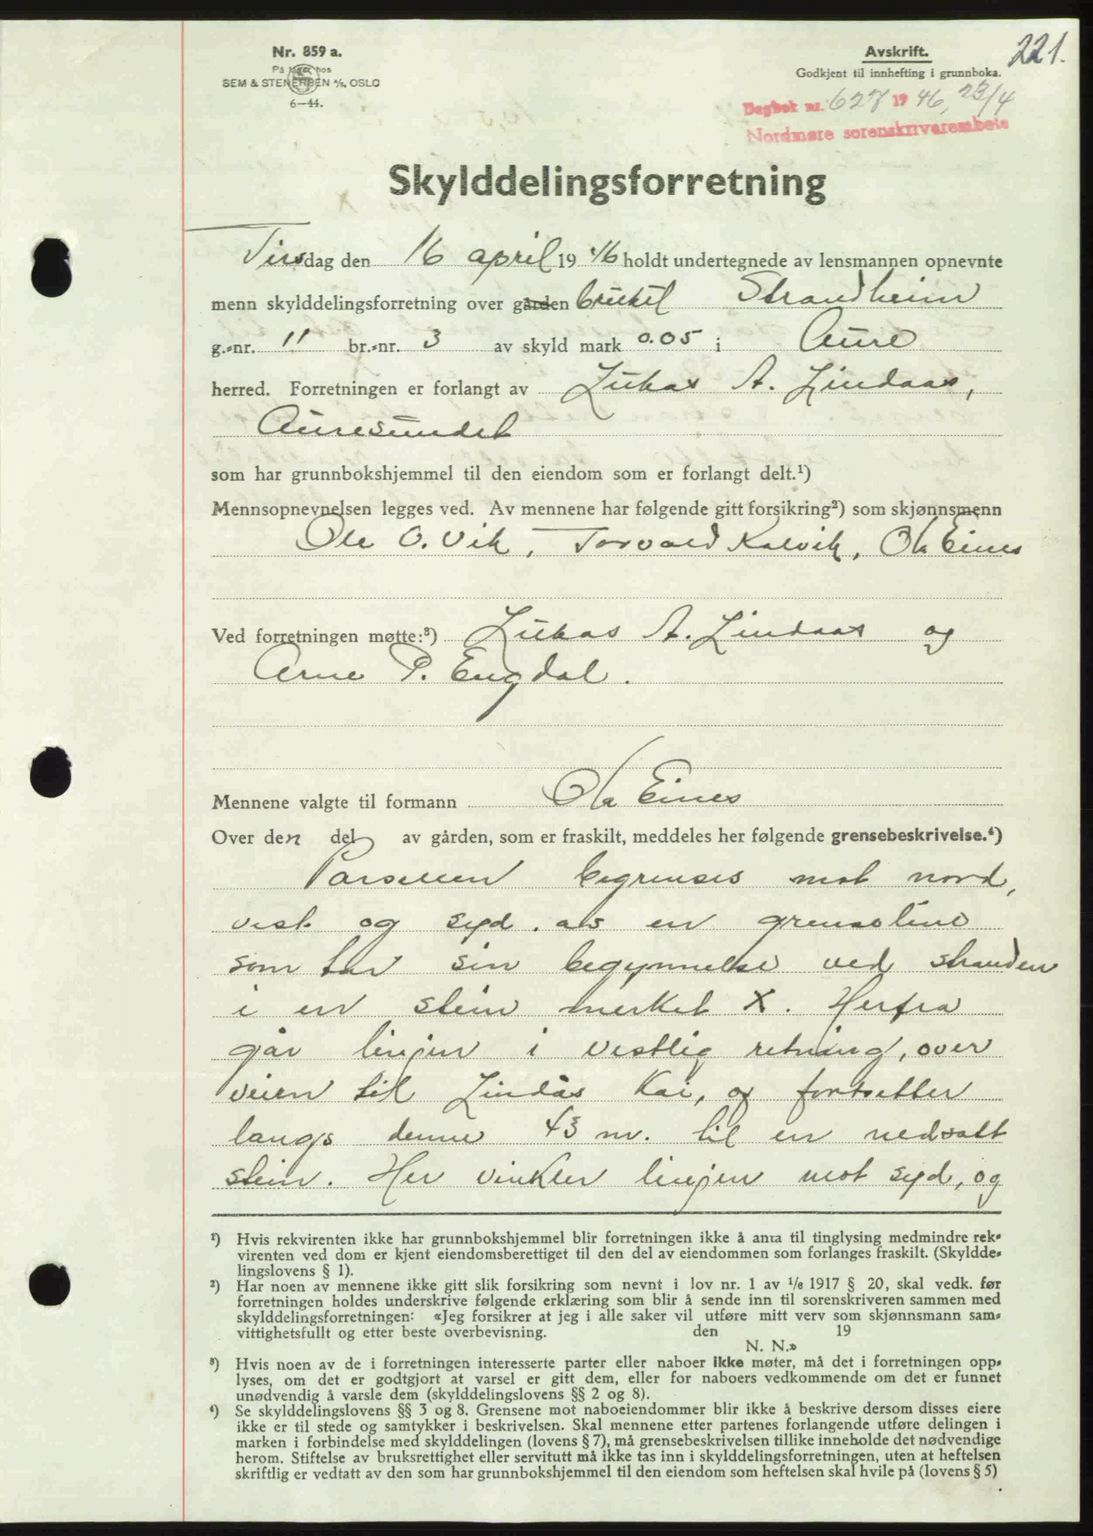 Nr. 859 a.
På lager hos
SEM & STENERSEN A/S, OSLO
6—44.
Avskrift.
Godkjent til innhefting i grunnboka.
221.
Dagbok nr. 627 1946, 23/4
Nordmøre sorenskriverembete
Skylddelingsforretning
Tirsdag den 16 april 19 46 holdt undertegnede av lensmannen opnevnte
menn skylddelingsforretning over gården bruket Strandheim
g.-nr. 11 br.-nr. 3 av skyld mark 0.05 i Aure
herred. Forretningen er forlangt av Lukas A. Lindaas,
Auresundet
som har grunnbokshjemmel til den eiendom som er forlangt delt.¹)
Mennsopnevnelsen legges ved. Av mennene har følgende gitt forsikring²) som skjønnsmenn
Ole O. Vik, Torvald Kalvik, Ola Eines
Ved forretningen møtte:³) Lukas A. Lindaas og
Arne P. Engdal.
Mennene valgte til formann Ola Eines
Over den del av gården, som er fraskilt, meddeles her følgende grensebeskrivelse.⁴)
Parsellen begrenses mot nord,
vest og syd. av en grenselinie
som har sin begynnelse ved stranden
i en stein merket X. Herfra
går linjen i vestlig retning, over
veien til Lindås Kai, og fortsetter
langs denne 43 m. til en nedsatt
stein. Her vinkler linjen mot syd, og
¹) Hvis rekvirenten ikke har grunnbokshjemmel blir forretningen ikke å anta til tinglysing medmindre rek-
virenten ved dom er kjent eiendomsberettiget til den del av eiendommen som forlanges fraskilt. (Skyldde-
lingslovens § 1).
²) Har noen av mennene ikke gitt slik forsikring som nevnt i lov nr. 1 av 1/6 1917 § 20, skal vedk. før
forretningen holdes underskrive følgende erklæring som blir å sende inn til sorenskriveren sammen med
skylddelingsforretningen: «Jeg forsikrer at jeg i alle saker vil utføre mitt verv som skjønnsmann sam-
vittighetsfullt og etter beste overbevisning. den 19
N. N.»
³) Hvis noen av de i forretningen interesserte parter eller naboer ikke møter, må det i forretningen opp-
lyses, om det er godtgjort at varsel er gitt dem, eller for naboers vedkommende om det er funnet
unødvendig å varsle dem (skylddelingslovens §§ 2 og 8).
⁴) Se skylddelingslovens §§ 3 og 8. Grensene mot naboeiendommer blir ikke å beskrive dersom disses eiere
ikke er til stede og samtykker i beskrivelsen. Skal mennene etter partenes forlangende utføre delingen i
marken i forbindelse med skylddelingen (lovens § 7), må grensebeskrivelsen tillike inneholde det nødvendige
herom. Stiftelse av bruksrettighet eller servitutt må ikke tas inn i skylddelingsforretningen, uten at heftelsen
skriftlig er vedtatt av den som har grunnbokshjemmel til den eiendom som heftelsen skal hvile på (lovens § 5)